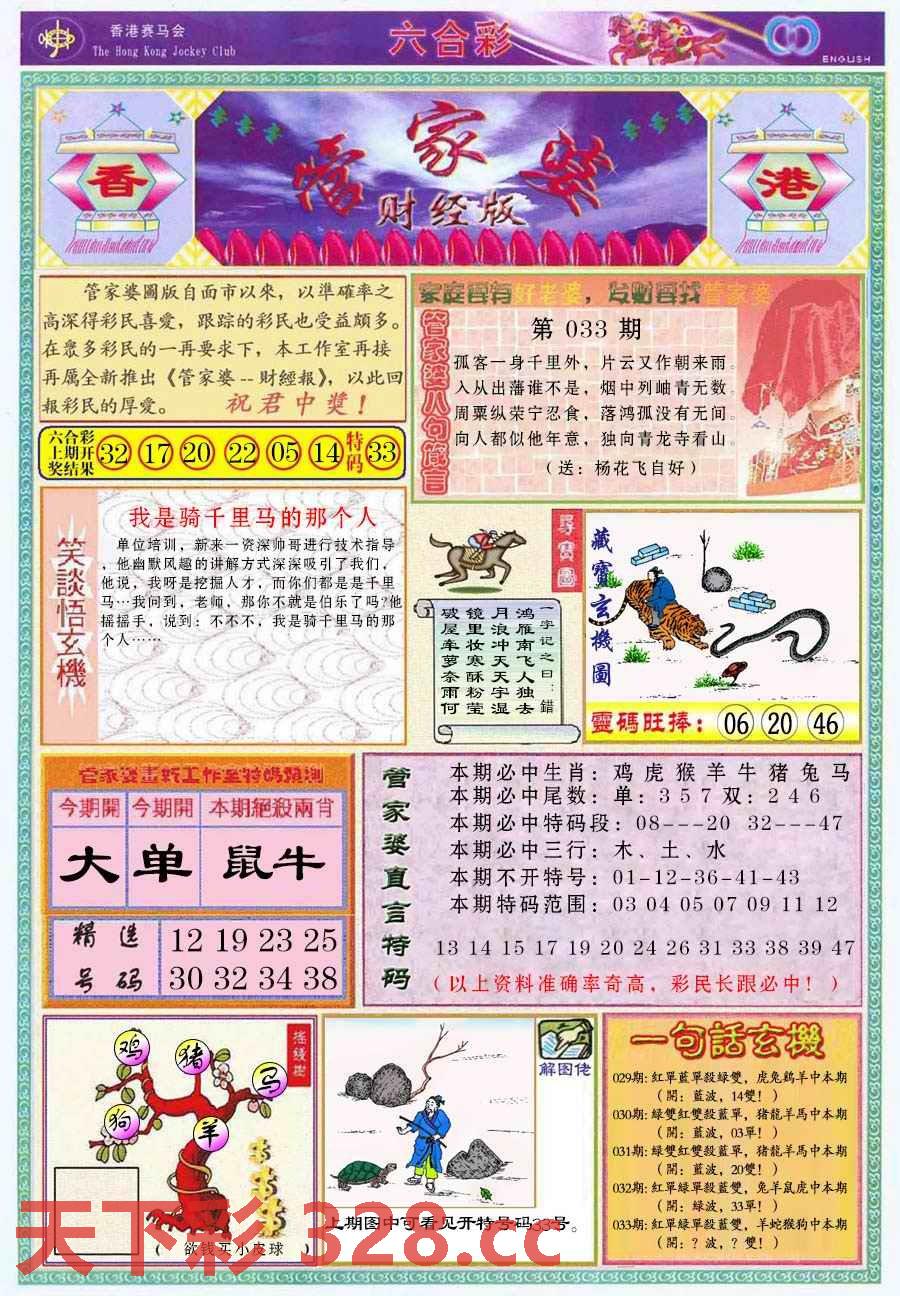 香港赛马会
The Hong Kong Jockey Club
六合彩
ENGLISH
香
管家婆
财经版
港
管家婆圖版自面市以來，以準確率之
高深得彩民喜愛，跟踪的彩民也受益頗多。
在眾多彩民的一再要求下，本工作室再接
再厲全新推出《管家婆--財經報》，以此回
報彩民的厚愛。 祝君中獎！
六合彩
上期开
奖结果
32 17 20 22 05 14 特码 33
家庭要有好老婆，发财要找管家婆
管家婆八句箴言
第 033 期
孤客一身千里外，片云又作朝来雨。
入从出藩谁不是，烟中列岫青无数。
周粟纵荣宁忍食，落鸿孤没有无间。
向人都似他年意，独向青龙寺看山。
（送：杨花飞自好）
笑談悟玄機
我是骑千里马的那个人
单位培训，新来一资深帅哥进行技术指导
，他幽默风趣的讲解方式深深吸引了我们，
他说，我呀是挖掘人才，而你们都是是千里
马…我问到，老师，那你不就是伯乐了吗?他
摇摇手，说到：不不不，我是骑千里马的那
个人……
一字记之曰：錯
鸿雁南飞人独去
月浪冲天天字湿
镜里妆寒酥粉莹
破屋牵萝奈雨何
尋寶圖
藏寶玄機圖
靈碼旺捧：06 20 46
今期開 今期開 本期絕殺兩肖
大 单 鼠牛
精选
号码
12 19 23 25
30 32 34 38
管家婆直言特码
本期必中生肖：鸡 虎 猴 羊 牛 猪 兔 马
本期必中尾数：单：3 5 7 双：2 4 6
本期必中特码段：08---20 32---47
本期必中三行：木、土、水
本期不开特号：01-12-36-41-43
本期特码范围：03 04 05 07 09 11 12
13 14 15 17 19 20 24 26 31 33 38 39 47
（以上资料准确率奇高，彩民长跟必中！）
摇錢樹
鸡
猪
马
狗
羊
（ 欲钱买小皮球 ）
解图佬
上期图中可看见开特号码33号。
一句話玄機
029期：紅單藍單殺綠雙，虎兔鷄羊中本期
（開：藍波，14雙！）
030期：绿雙紅雙殺藍單，猪龍羊馬中本期
（開：藍波，03單！）
031期：绿雙紅雙殺藍單，猪龍羊馬中本期
（開：藍波，20雙！）
032期：紅單綠單殺藍雙，兔羊鼠虎中本期
（開：綠波，33單！）
033期：紅單綠單殺藍雙，羊蛇猴狗中本期
（開：？波，？雙！）
天下彩 328.cc